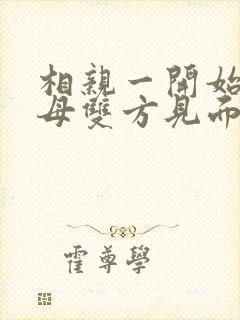 相親一開始
母雙方見面
霍尊學